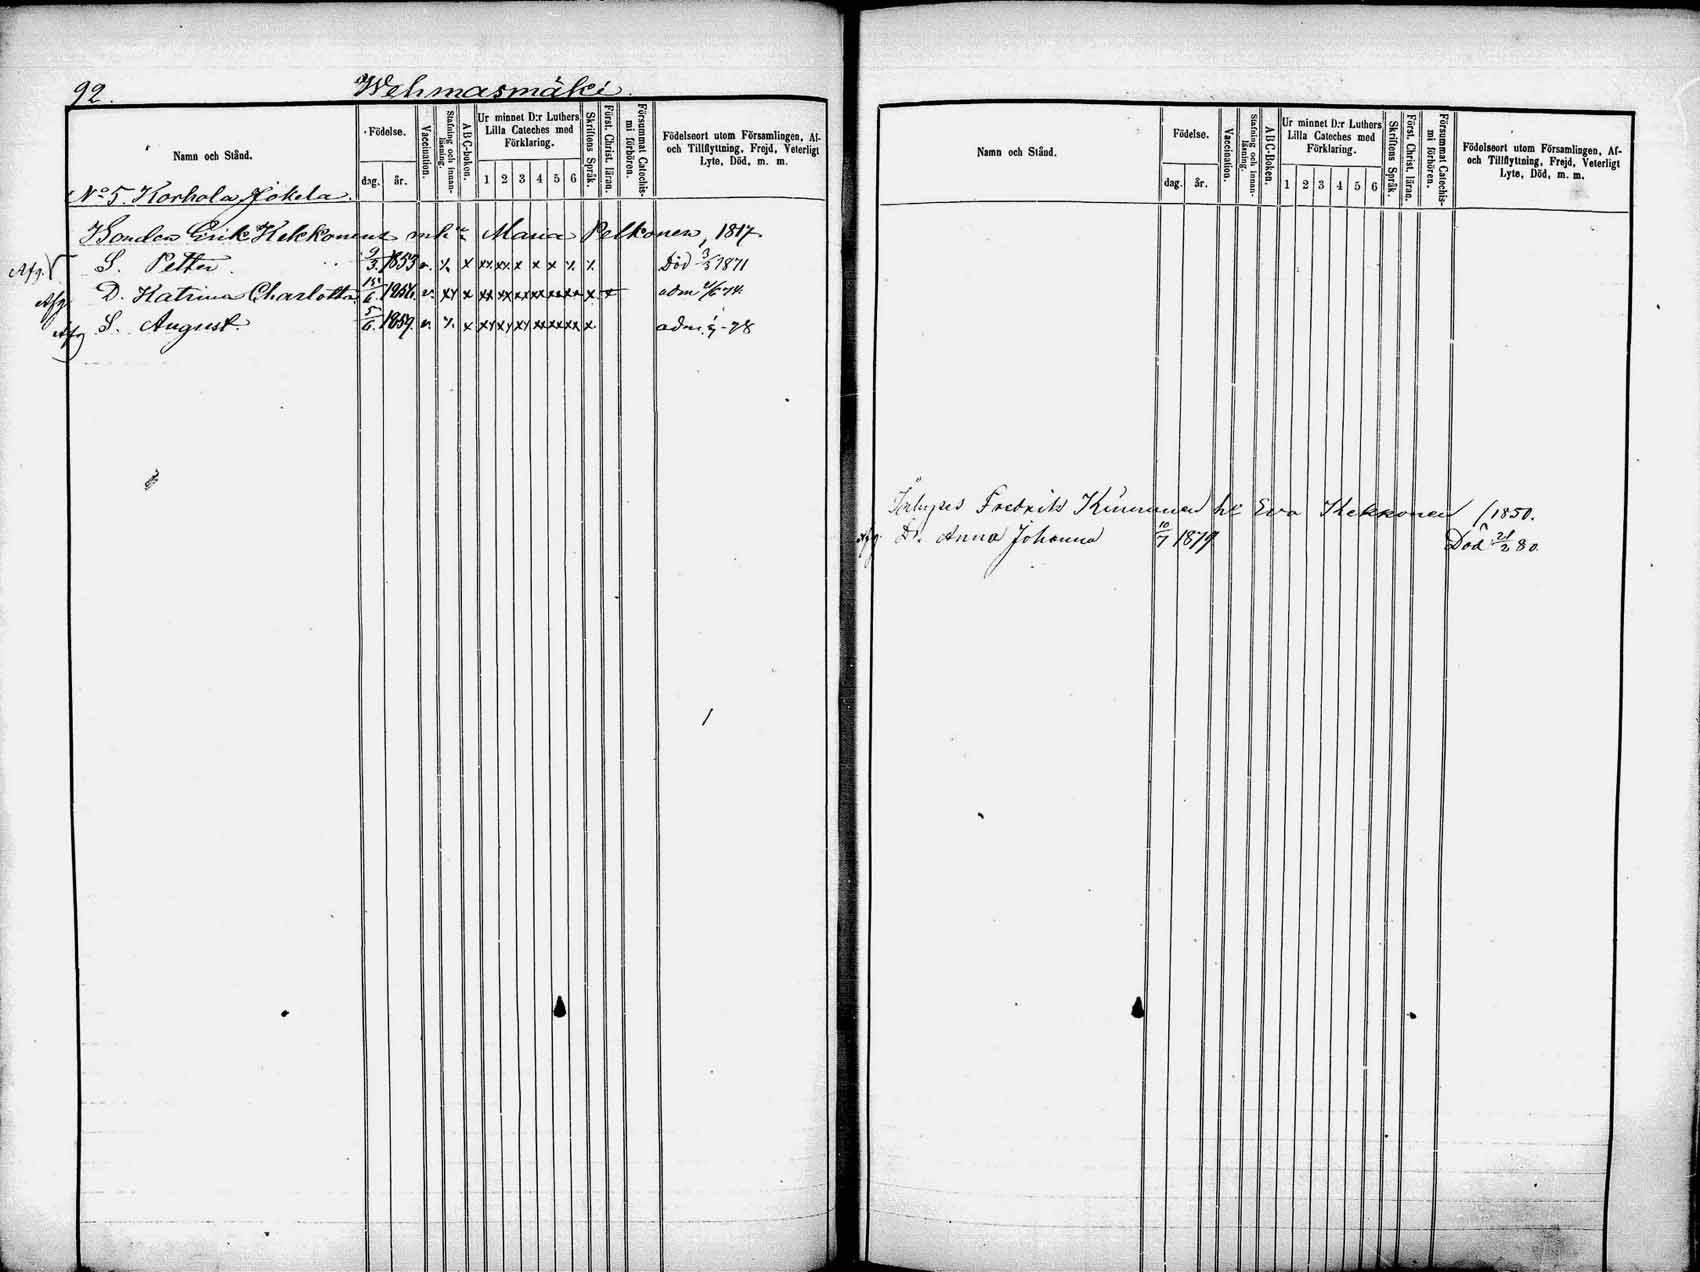 92. Wehmasmäki.
Namn och Stånd.
Födelse.
dag. år.
Vaccination.
Stafning och innan-läsning.
A B C-boken.
Ur minnet D:r Luthers Lilla Cateches med Förklaring.
1 2 3 4 5 6
Skriftens Språk.
Först. Christ. läran.
Försummat Catechis-mi förhören.
Födelseort utom Församlingen, Af- och Tillflyttning, Frejd, Veterligt Lyte, Död, m. m.
No 5. Korhola, Jokela.
Bonden Erik Kekkonens och Maria Pelkonen, 1817
Afg. S. Petter 9/3 1853 v. x x x x x x Död 3/3 1871
Afg D. Katrina Charlotta 15/6 1856 v. xx x xx xx xx xx xx xx x x adm /6 74.
Afg S. August 5/6 1859. v. x xx xx xx xx xx xx x adm. -78
Namn och Stånd.
Födelse.
dag. år.
Vaccination.
Stafning och innan-läsning.
A B C-Boken.
Ur minnet D:r Luthers Lilla Cateches med Förklaring.
1 2 3 4 5 6
Skriftens Språk.
Först. Christ. läran.
Försummat Catechis-mi förhören.
Födelseort utom Församlingen, Af- och Tillflyttning, Frejd, Veterligt Lyte, Död, m. m.
Fredrik Kinnunen h. Eva Kekkonen / 1850.
Afg. D. Anna Johanna 10/7 1879 Död 21/2 80.